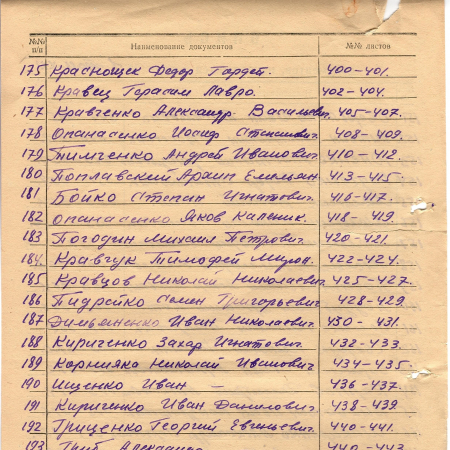 №№ п/п Наименование документов №№ листов
175 Краснощек Федор Гордег. 400-401.
176 Кравец Герасим Лавро. 402-404.
177 Кравченко Александр Васильевич 405-407.
178 Опанасенко Иосиф Степанович 408-409.
179 Тимченко Андрей Иванович 410-412.
180 Поплавский Архип Емельян 413-415.
181 Бойко Степан Игнатович. 416-417.
182 Опанасенко Яков Каленик. 418-419.
183 Погодин Михаил Петрович. 420-421.
184. Кравчук Тимофей 422-424.
185 Кравцов Николай Николаевич 425-427.
186 Пидрейко Семен Григорьевич 428-429.
187 Демьяненко Иван Николаевич. 430-431.
188 Кириченко Захар Игнатович. 432-433.
189 Корнияка Николай Иванович 434-435.
190 Ищенко Иван — 436-437.
191 Кириченко Иван Данилович. 438-439.
192 Гриценко Георгий Евгеньевич 440-441.
193 Александр